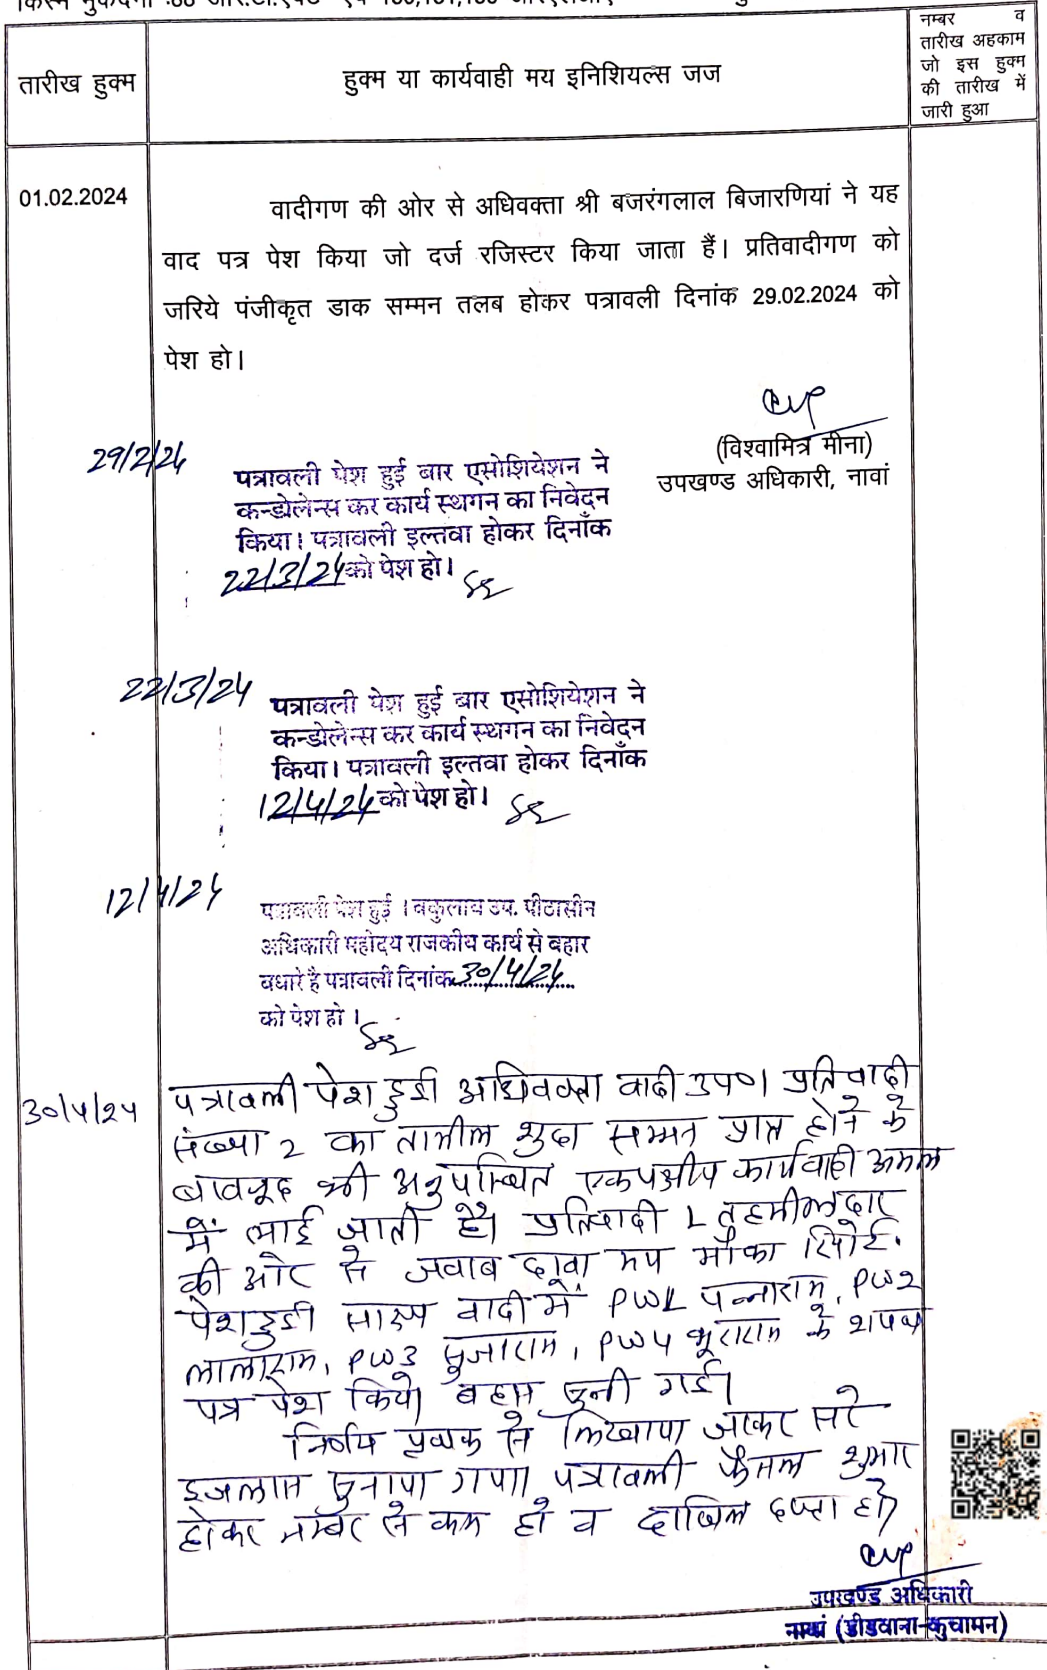 तारीख हुक्म
हुक्म या कार्यवाही मय इनिशियल्स जज
नम्बर व
तारीख अहकाम
जो इस हुक्म
की तारीख में
जारी हुआ
01.02.2024
वादीगण की ओर से अधिवक्ता श्री बजरंगलाल बिजारणियां ने यह
वाद पत्र पेश किया जो दर्ज रजिस्टर किया जाता हैं। प्रतिवादीगण को
जरिये पंजीकृत डाक सम्मन तलब होकर पत्रावली दिनांक 29.02.2024 को
पेश हो।
(विश्वामित्र मीना)
उपखण्ड अधिकारी, नावां
29/2/24
पत्रावली पेश हुई बार एसोशियेशन ने
कन्डोलेन्स कर कार्य स्थगन का निवेदन
किया। पत्रावली इल्तवा होकर दिनाँक
22/3/24 को पेश हो।
22/3/24
पत्रावली पेश हुई बार एसोशियेशन ने
कन्डोलेन्स कर कार्य स्थगन का निवेदन
किया। पत्रावली इल्तवा होकर दिनाँक
12/4/24 को पेश हो।
12/4/24
पत्रावली पेश हुई । वकुलाय उप. पीठासीन
अधिकारी महोदय राजकीय कार्य से बहार
पधारे है पत्रावली दिनांक 30/4/24
को पेश हो ।
30/4/24
पत्रावली पेश हुई अधिवक्ता वादी उप०। प्रतिवादी
संख्या 2 का तामील शुदा सम्मन प्राप्त होने के
बावजूद भी अनुपस्थित एकपक्षीय कार्यवाही अमल
में लाई जाती है। प्रतिवादी 1 तहसीलदार
की ओर से जवाब दावा मय मौका रिपोर्ट
पेश हुई साक्ष्य वादी में PW1 पन्नाराम, PW2
लालाराम, PW3 पुजाराम, PW4 भूराराम के शपथ
पत्र पेश किये। बहस सुनी गई।
निर्णय पृथक से लिखाया जाकर सरे
इजलास सुनाया गया पत्रावली फैसल शुमार
होकर नम्बर से कम हो व दाखिल दफ्तर हो।
उपखण्ड अधिकारी
नावां (डीडवाना-कुचामन)